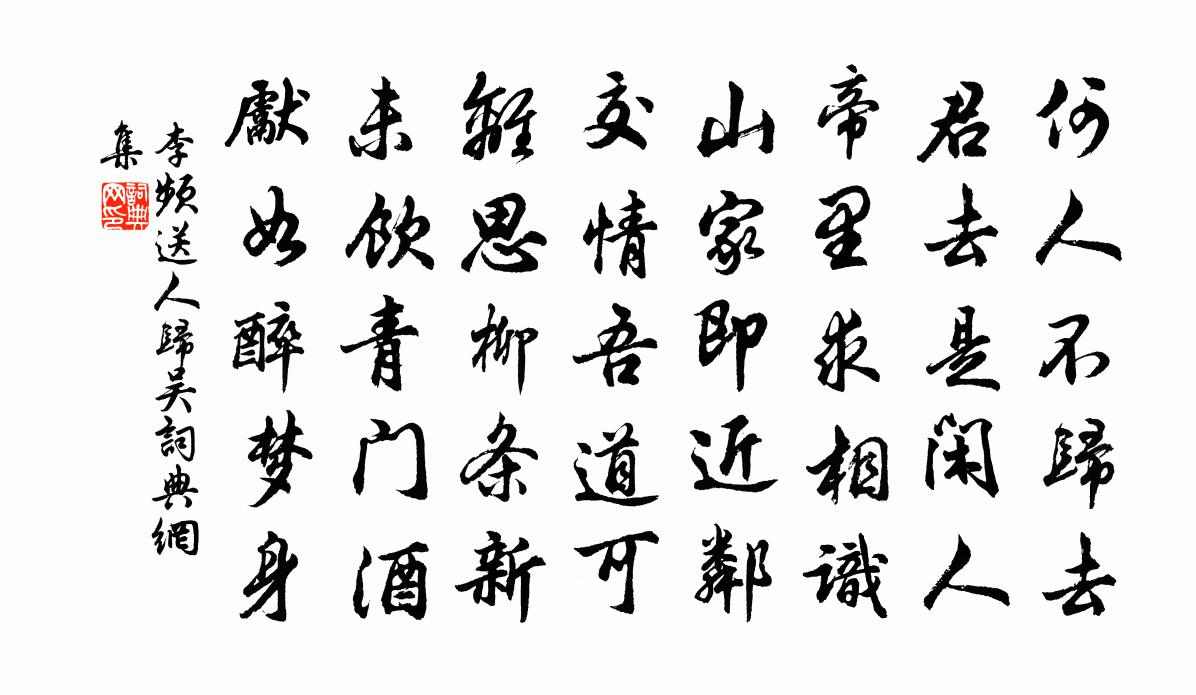 何人不歸去
君去是閑人
帝里求相識
山家即近鄰
交情吾道可
離思柳条新
未飲青门酒
獻如醉梦身
李頻送人歸吴詞典網
集
詞典网印